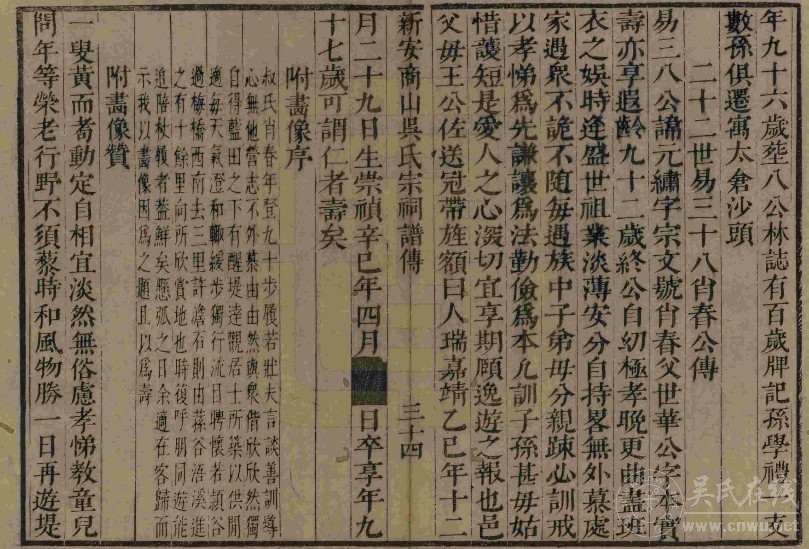 年九十六歲塟八公林誌有百歲牌記孫學禮一支
數孫俱遷寓太倉沙頭
二十二世易三十八肖春公傳
易三八公諱元繡字宗文號肖春父世華公字本實
壽亦享遐齡九十二歲終公自幼極孝晚更曲盡班
衣之娛時逢盛世祖業淡薄安分自持畧無外慕處
家遇衆不詭不隨每遇族中子弟毋分親踈必訓戒
以孝悌爲先謙讓爲法勤儉爲本凢訓子孫甚毋姑
惜護短是愛人之心深切宜享期頤逸遊之報也邑
父母王公佐送冠帶旌額曰人瑞嘉靖乙巳年十二
新安商山吳氏宗祠譜傳
三十四
月二十九日生崇禎辛巳年四月
日卒享年九
十七歲可謂仁者壽矣
附畫像序
叔氏肖春年登九十步履若壯夫言談善訓導
心無他營志不外慕由由然與衆偕欣欣然獨
自得藍田之下有醒堤達觀居士所築以供閒
適每天氣澄和輙緩步獨行流目聘懷若潁谷
過梅橋西南去三里許澹石則由蓀谷浯溪進
之有十餘里向所欣賞地也時復呼朋同遊能
追陪杖履者葢鮮矣懸弧之日余適在客歸而
示我以畫像因爲之題且以爲壽
附畫像贊
一叟黃而耈動定自相宜淡然無俗慮孝悌教童兒
問年等榮老行野不須藜時和風物勝一日再遊堤
吳氏在线
www.cnwu.net